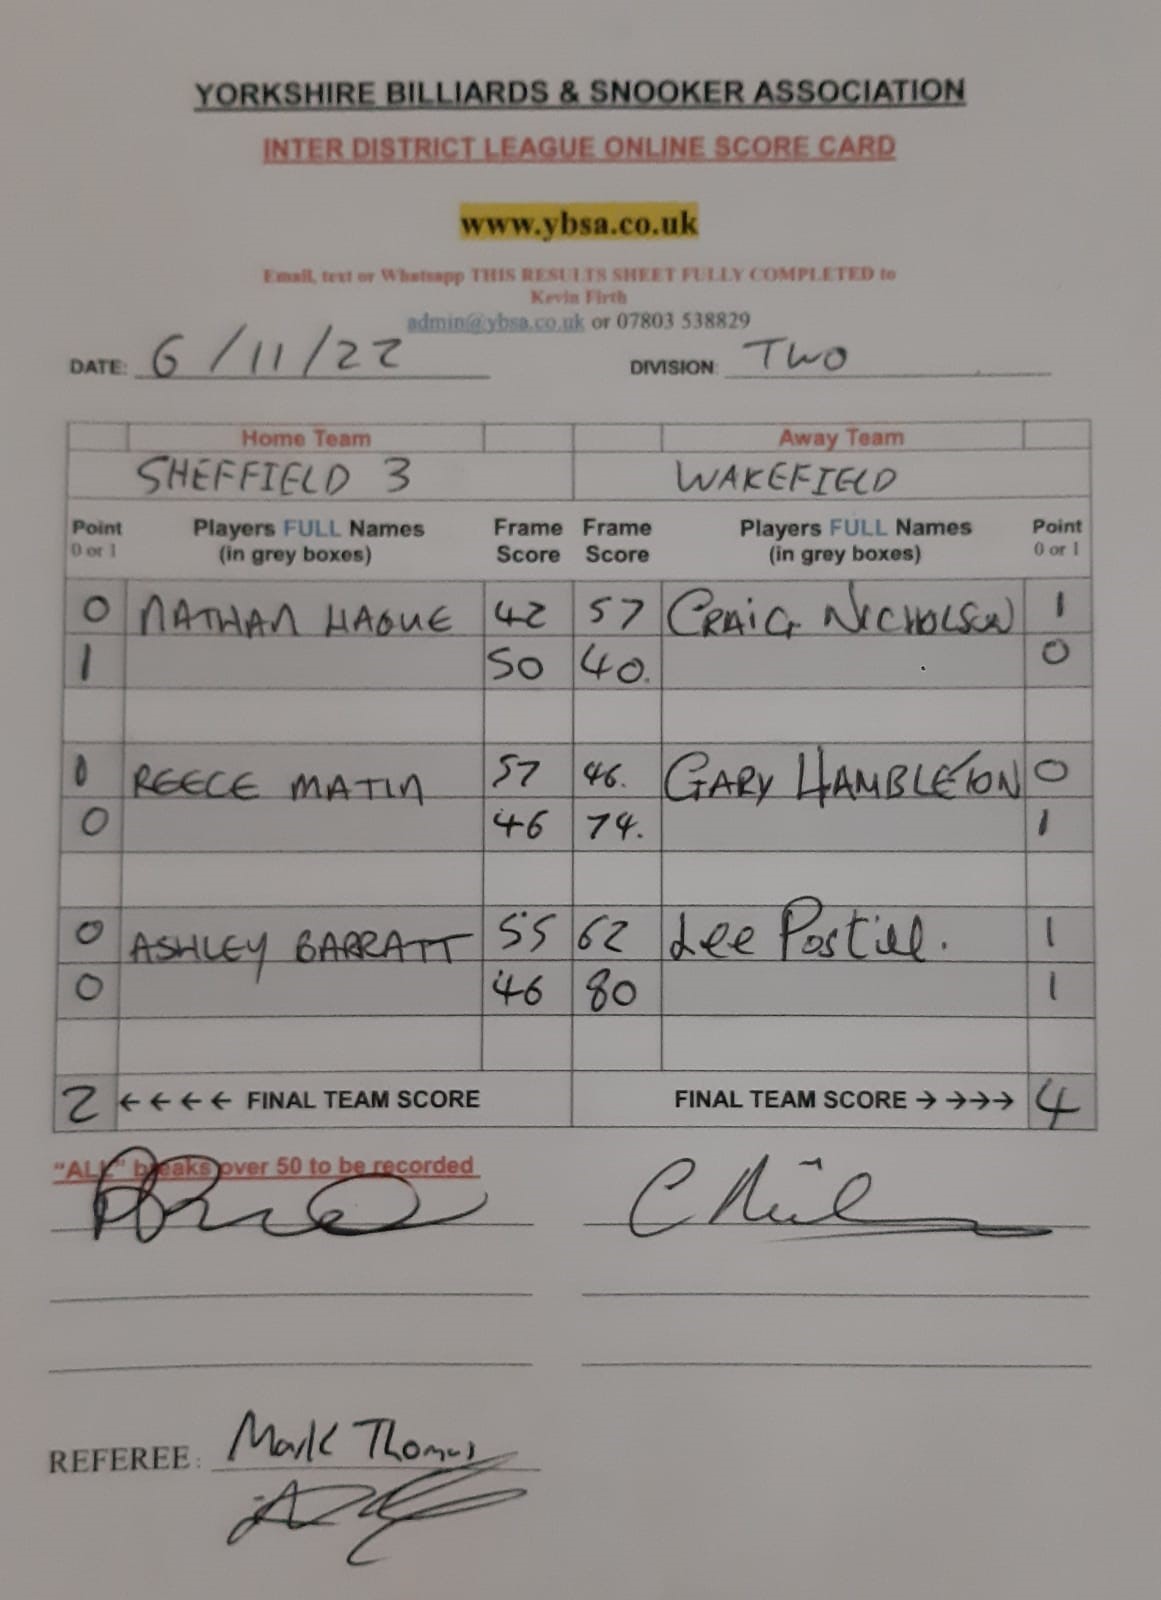 YORKSHIRE BILLIARDS & SNOOKER ASSOCIATION
INTER DISTRICT LEAGUE ONLINE SCORE CARD
www.ybsa.co.uk
Email, text or Whatsapp THIS RESULTS SHEET FULLY COMPLETED to
Kevin Firth
admin@ybsa.co.uk or 07803 538829
DATE: 6/11/22 DIVISION: TWO
Home Team Away Team
SHEFFIELD 3 WAKEFIELD
Point Players FULL Names Frame Frame Players FULL Names Point
0 or 1 (in grey boxes) Score Score (in grey boxes) 0 or 1
0 NATHAN HAGUE 42 57 CRAIG NICHOLSON 1
1 50 40. 0
1 REECE MATIN 57 46. GARY HAMBLETON 0
0 46 74. 1
0 ASHLEY BARRATT 55 62 Lee Postill. 1
0 46 80 1
2 ←←←← FINAL TEAM SCORE FINAL TEAM SCORE →→→→ 4
"ALL" breaks over 50 to be recorded
REFEREE: Mark Thomas